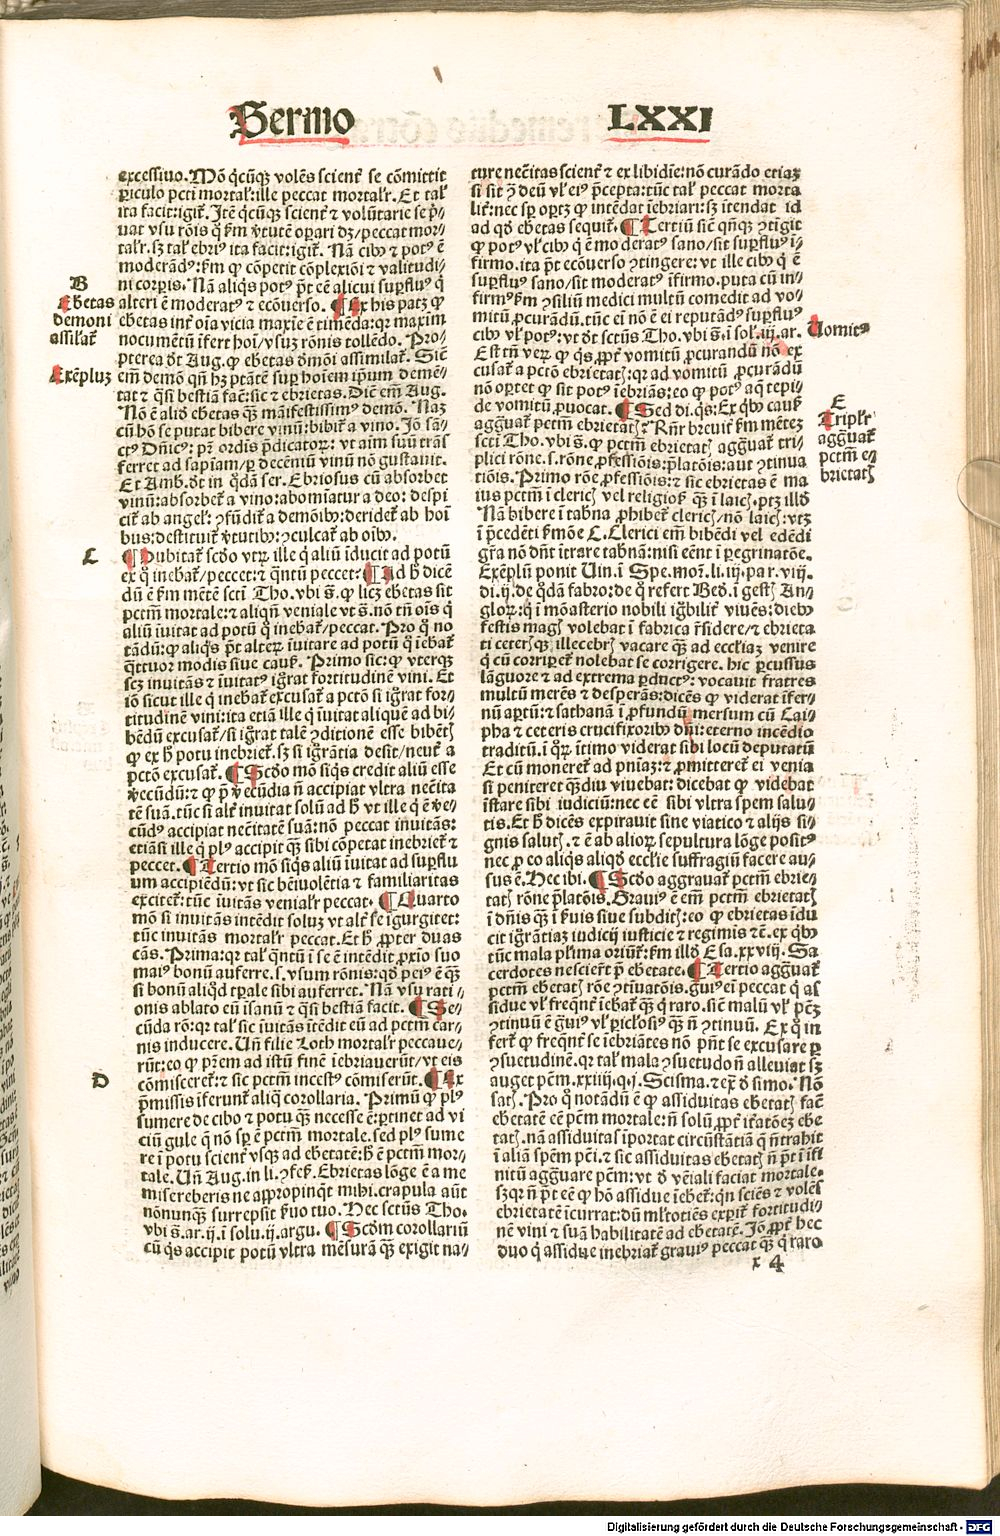 Sermo LXXI
excessiuo. Mō q̇cūqꝫ volēs scient̄ se cōmittit
ꝑiculo pctī mortal̄: ille peccat mortalr̄. Et tal̄
ita facit: igit̄. Itē q̇cūqꝫ scient̄ ⁊ volūtarie se p̄ꝛ
uat vsu rōis q̇ ẜm v̓tutē oꝑari dꝫ/ peccat mor⸗
talr̄. sꝫ tal̄ ebri⁹ ita facit: igit̄. Nā cib⁹ ⁊ pot⁹ ē
moderād⁹: ẜm ꝙ cōpetit cōplexiōi ⁊ valitudi⸗
ni corꝑis. Nā aliqͥs pot⁹ p̄t eē alicui suꝑflu⁹ q̇
alteri ē moderat⁹ ⁊ ecōuerso. ¶ Ex his patꝫ ꝙ
ebetas int̄ oīa vicia maxīe ē timēda: qꝛ maxim
nocumētū īfert hoī/ vsuꝫ rōnis tollēdo. Pro⸗
pterea dt̄ Aug. ꝙ ebetas dmōi assimilat̄. Sic̄
em̄ demō qn̄ hꝫ ptātē suꝑ hoīem ip̄um demē⸗
tat ⁊ qͣsi bestiā fac̄: sic ⁊ ebrietas. Dic̄ em̄ Aug.
Nō ē aliḋ ebetas qꝫ māifestissim⁹ demō. Naꝫ
cū hō se putat bibere vinū: bibit̄ a vino. Jō sā⸗
ct⁹ Dn̄ic⁹: pr̄ ordīs p̄dicatoꝝ: vt aīm suū trās
ferret ad sapiam/ ꝑ decēniū vinū nō gustauit.
Et Amb. dt̄ in qͦdā ser. Ebriosus cū absorbet
vinū: absorbet̄ a vino: abomīatur a deo: despi
cit̄ ab angel̄: ꝯfūdit̄ a demōib⁹: deridet̄ ab hoī
bus: destituit̄ v̓tutib⁹: ꝯculcat̄ ab oīb⁹.
¶ Dubitat̄ scḋo vtꝝ ille q̇ aliū īducit ad potū
ex q̇ inebat̄/ peccet: ⁊ qͣntū peccet? ¶ Ad h̄ dicē
dū ē ẜm mētē scti Tho. vbi s̄. ꝙ licꝫ ebetas sit
pctm̄ mortale: ⁊ aliqn̄ veniale vt s̄. nō tn̄ oīs q̇
aliū īuitat ad potū q̇ inebat̄/ peccat. Pro q̇ no
tādū: ꝙ aliqͥs p̄t alteꝝ īuitare ad potū q̇ īebat̄
qͣttuor modis siue cauſ. Primo sic: ꝙ vterqꝫ
scꝫ inuitās ⁊ īuitat⁹ ig̃rat fortitudinē vini. Et
iō sicut ille q̇ inebat̄ excusat̄ a pctō si ig̃rat for⸗
titudinē vini: ita etiā ille q̇ īuitat aliquē ad bi⸗
bēdū excusat̄/ si ig̃rat talē ꝯditionē esse bibētꝭ
ꝙ ex h̄ potu inebriet̄. sꝫ si ig̃rātia desit/ neut̄ a
pctō excusat̄. ¶ Scḋo mō siqͥs credit aliū esse
v̓ecūdū: ⁊ ꝙ p̄ v̓ecūdia n̄ accipiat vltra neci̅ta
tē suā. tūc si alt̄ inuitat solū ad h̄ vt ille q̇ ē v̓e⸗
cūd⁹ accipiat nec̄itatē suā: nō peccat inuitās:
etiāsi ille q̇ pl⁹ accipit qꝫ sibi cōpetat inebriet̄ ⁊
peccet. ¶ Tertio mō siqͥs aliū īuitat ad suꝑflu
um accipiēdū: vt sic bēiuolētia ⁊ familiaritas
exciteꝭ: tūc īuitās venialr̄ peccat. ¶ Quarto
mō si inuitās intēdit soluꝫ vt alt̄ se īgurgitet:
tūc inuitās mortalr̄ peccat. Et h̄ ꝓpter duas
cās. Prima: qꝛ tal̄ qͣntū ī se ē intēdit ꝓxīo suo
mai⁹ bonū auferre. s. vsum rōnis: qḋ pei⁹ ē qꝫ
si bonū aliqḋ tꝑale sibi auferret. Nā vsu rati⸗
onis ablato eū īsanū ⁊ qͣsi bestiā facit. ¶ Se⸗
cūda rō: qꝛ tal̄ sic īuitās ītēdit eū ad pctm̄ car⸗
nis inducere. Vn̄ filie Loth mortalr̄ peccaue⸗
rūt: eo ꝙ pr̄em ad istū finē īebriauerūt/ vt eis
cōmiscerēt̄: ⁊ sic pctm̄ incest⁹ cōmiserūt. ¶ Ex
p̄missis īferunt̄ aliq̄ corollaria. Primū ꝙ pl⁹
sumere de cibo ⁊ potu qꝫ necesse ē: ꝑtinet ad vi
ciū gule q̇ nō sꝑ ē pctm̄ mortale. sed pl⁹ sume
re ī potu scient̄ vsqꝫ ad ebetatē: h̄ ē pctm̄ mor⸗
tale. Vn̄ Aug. in li. ꝯfes̄. Ebrietas lōge ē a me
misereberis ne appropinqͥt mihi. crapula aūt
nōnunqꝫ surrepsit s̓uo tuo. Hec sctūs Tho.
vbi s̄. ar. ij. ī solu. ij. argu. ¶ Scḋm corollariū
cū qͥs accipit potū vltra mēsurā qꝫ exigit na⸗
B
Ebetas
demoni
assilat̄
Exēpluꝫ
C
D
ture nec̄itas scient̄ ⁊ ex libidīe: nō curādo etiaꝫ
si sit ꝯ̄ deū vl̓ ei⁹ p̄cepta: tūc tal̄ peccat morta
lit̄: nec sꝑ oꝑtꝫ ꝙ intēdat īebriari: sꝫ ītendat id
ad qḋ ebetas sequit̄. ¶ Tertiū sic̄ qn̄qꝫ ꝯtīgit
ꝙ pot⁹ vl̓ cib⁹ q̇ ē moderat⁹ sano/ sit suꝑflu⁹ ī⸗
firmo. ita p̄t ecōuerso ꝯtingere: vt ille cib⁹ q̇ ē
suꝑflu⁹ sano/ sit moderat⁹ īfirmo. puta cū in⸗
firm⁹ ẜm ꝯsiliū medici multū comedit ad vo⸗
mitū ꝓcurādū. tūc ei nō ē ei reputād⁹ suꝑflu⁹
cib⁹ vl̓ pot⁹: vt dt̄ sctūs Tho. vbi s̄. ī sol̄. iij. ar.
Est tn̄ veꝝ ꝙ qͥs ꝓpt̄ vomitū ꝓcurandū nō ex
cusat̄ a pctō ebrietatꝭ: qꝛ ad vomitū ꝓcurādū
nō oꝑtet ꝙ sit pot⁹ īebriās: eo ꝙ pot⁹ aq̄ tepi⸗
de vomitū ꝓuocat. ¶ Sed di. qͥs: Ex qͥb⁹ cauſ
agg̃uat̄ pctm̄ ebrietatꝭ? Rn̄r breuit̄ ẜm mētez
scti Tho. vbi s̄. ꝙ pctm̄ ebrietatꝭ agg̃uat̄ tri⸗
plici rōne. s. rōne ꝓfessiōis: p̄latōis: aut ꝯtinua
tiōis. Primo rōe ꝓfessiōis: ⁊ sic ebrietas ē ma
ius pctm̄ ī clericꝭ vel religioſ qꝫ ī laicꝭ. ptꝫ illḋ
Nā bibere ī tabna ꝓhibet̄ clericꝭ/ nō laicꝭ: vtꝫ
ī p̄cedēti ẜmōe C. Clerici em̄ bibēdi vel edēdi
g̃ra nō dn̄t ītrare tabnā: nisi eēnt ī ꝑegrinatōe.
Exēplū ponit Vin. ī Spe. mor. li. iij. par. viij.
di. ij. de qͦdā fabro: de q̇ refert Bed. ī gestꝭ An⸗
gloꝝ: q̇ ī mōasterio nobili ig̃bilit̄ viuēs: dieb⁹
festis magꝭ volebat ī fabrica r̄sidere/ ⁊ ebrieta
ti ceterꝭqꝫ illecebrꝭ vacare qꝫ ad eccl̄iaꝫ venire
q̇ cū corriperet̄ nolebat se corrigere. hic ꝑcussus
lāguore ⁊ ad extrema ꝑduct⁹: vocauit fratres
multū merēs ⁊ desperās: dicēs ꝙ viderat īfer⸗
nū aꝑtū: ⁊ sathanā ī ꝓfundū mersum cū Cai⸗
pha ⁊ ceteris crucifixorib⁹ dn̄i: eterno incēdio
traditū. ī qͦꝝ ītimo viderat sibi locū deputatū
Et cū moneret̄ ad pn̄iaꝫ: ⁊ ꝓmitteret̄ ei venia
si peniteret qͣdiu viuebat: dicebat ꝙ videbat
īstare sibi iudiciū: nec eē sibi vltra spem salu⸗
tis. Et h̄ dicēs expirauit sine viatico ⁊ alijs si⸗
gnis salutꝭ. ⁊ ē ab alioꝝ sepultura lōge posit⁹
nec ꝓ eo aliqͥs aliqḋ eccl̄ie suffragiū facere au⸗
sus ē. Hec ibi. ¶ Scḋo aggrauat̄ pctm̄ ebrie⸗
tatꝭ rōne p̄latōis. Graui⁹ ē em̄ pctm̄ ebrietatꝭ
ī dn̄is qꝫ ī s̓uis siue subditꝭ: eo ꝙ ebrietas īdu
cit ig̃rātiaꝫ iudicij iusticie ⁊ regimis ⁊c̄. ex qͥb⁹
tūc mala pl̓ima oriūt̄: ẜm illḋ Esa. xxviij. Sa
cerdotes nescierūt p̄ ebetate. ¶ Tertio agg̃uat̄
pctm̄ ebetatꝭ rōe ꝯtīuatōis. g̃ui⁹ ei peccat q̇ as
sidue vl̓ freqn̄t īebat̄ qꝫ q̇ raro. sic̄ malū vl̓ pctꝫ
ꝯtinuū ē g̃ui⁹ vl̓ ꝑiclosi⁹ qꝫ n̄ ꝯtinuū. Ex q̇ in
fert̄ ꝙ freqn̄t se īebriātes nō pn̄t se excusare ꝑ
ꝯsuetudinē. qꝛ tal̄ mala ꝯsuetudo n̄ alleuiat sꝫ
auget pctm̄. xxiiij. q. j. Scisma. ⁊ ex̄ ḋ simo. Nō
satꝭ. Pro q̇ notādū ē ꝙ assiduitas ebetatꝭ fac̄
ebetatē eē pctm̄ mortale: n̄ solū ꝓpt̄ it̄atōeꝫ ebe
tatꝭ. nā assiduitas īportat circūstātiā q̄ n̄ trahit
ī aliā spem pcti. ⁊ sic assiduitas ebetatꝭ n̄ p̄t ī īfi
nitū agg̃uare pctm̄: vt ḋ vēiali faciat mortale.
sꝫ qꝛ n̄ p̄t eē ꝙ hō assidue īebet̄: qn̄ sciēs ⁊ volēs
ebrietatē īcurrat: dū ml̓totiēs exꝑit̄ fortitudi⸗
nē vini ⁊ suā habilitatē ad ebetatē. Jō ꝓpt̄ hec
duo q̇ assidue inebriat̄ graui⁹ peccat qꝫ q̇ raro
Vomit⁹
E
Triplr̄
agg̃uat̄
pctm̄ e⸗
brietatꝭ
x 4
Digitalisierung gefördert durch die Deutsche Forschungsgemeinschaft - DFG